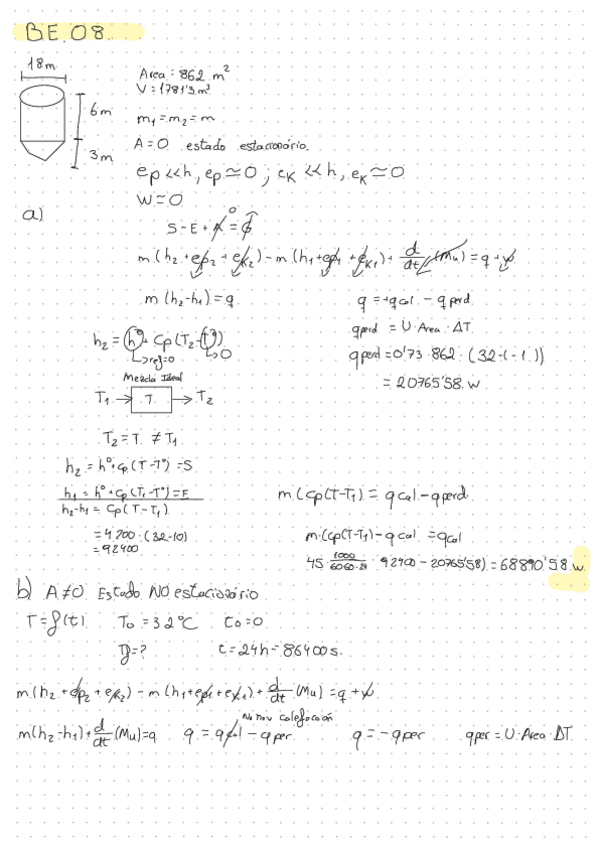 BE.08.
18m
6m
3m
Area : 862 m²
V = 1781'3 m³
m₁ = m₂ = m
A = 0 estado estacionário.
ep << h, ep ≃ 0 ; eK << h, eK ≃ 0
W = 0
a)
S - E + A = G
0
m (h₂ + ep₂ + eK₂) - m (h₁ + ep₁ + eK₁) + d/dt (Mu) = q + w
m (h₂ - h₁) = q
q = + qcal. - qperd.
h₂ = h° + Cp (T₂ - T°)
ref = 0
0
qperd = U · Area · ΔT.
qperd = 0'73 · 862 · (32 - (-1))
= 20765'58. w
Mezcla Ideal
T₁ → T → T₂
T₂ = T. ≠ T₁
h₂ = h° + cp (T - T°) = S
h₁ = h° + cp (T₁ - T°) = E
h₂ - h₁ = Cp (T - T₁)
= 4200 · (32 - 10)
= 92400
m (Cp (T - T₁) = qcal - qperd.
m · (cp (T - T₁) - qcal = qcal
45 · 1000/60·60·24 · 92400 - 20765'58) = 68890'58. w
b) A ≠ 0 Estado NO estacionário
T = f(t) T₀ = 32°C t₀ = 0
Tf = ? t = 24h = 86400 s.
m (h₂ + ep₂ + eK₂) - m (h₁ + ep₁ + eK₁) + d/dt (Mu) = q + w
No hay calefacción
m (h₂ - h₁) + d/dt (Mu) = q q = qcal - qper q = - qper qper = U · Area · ΔT.